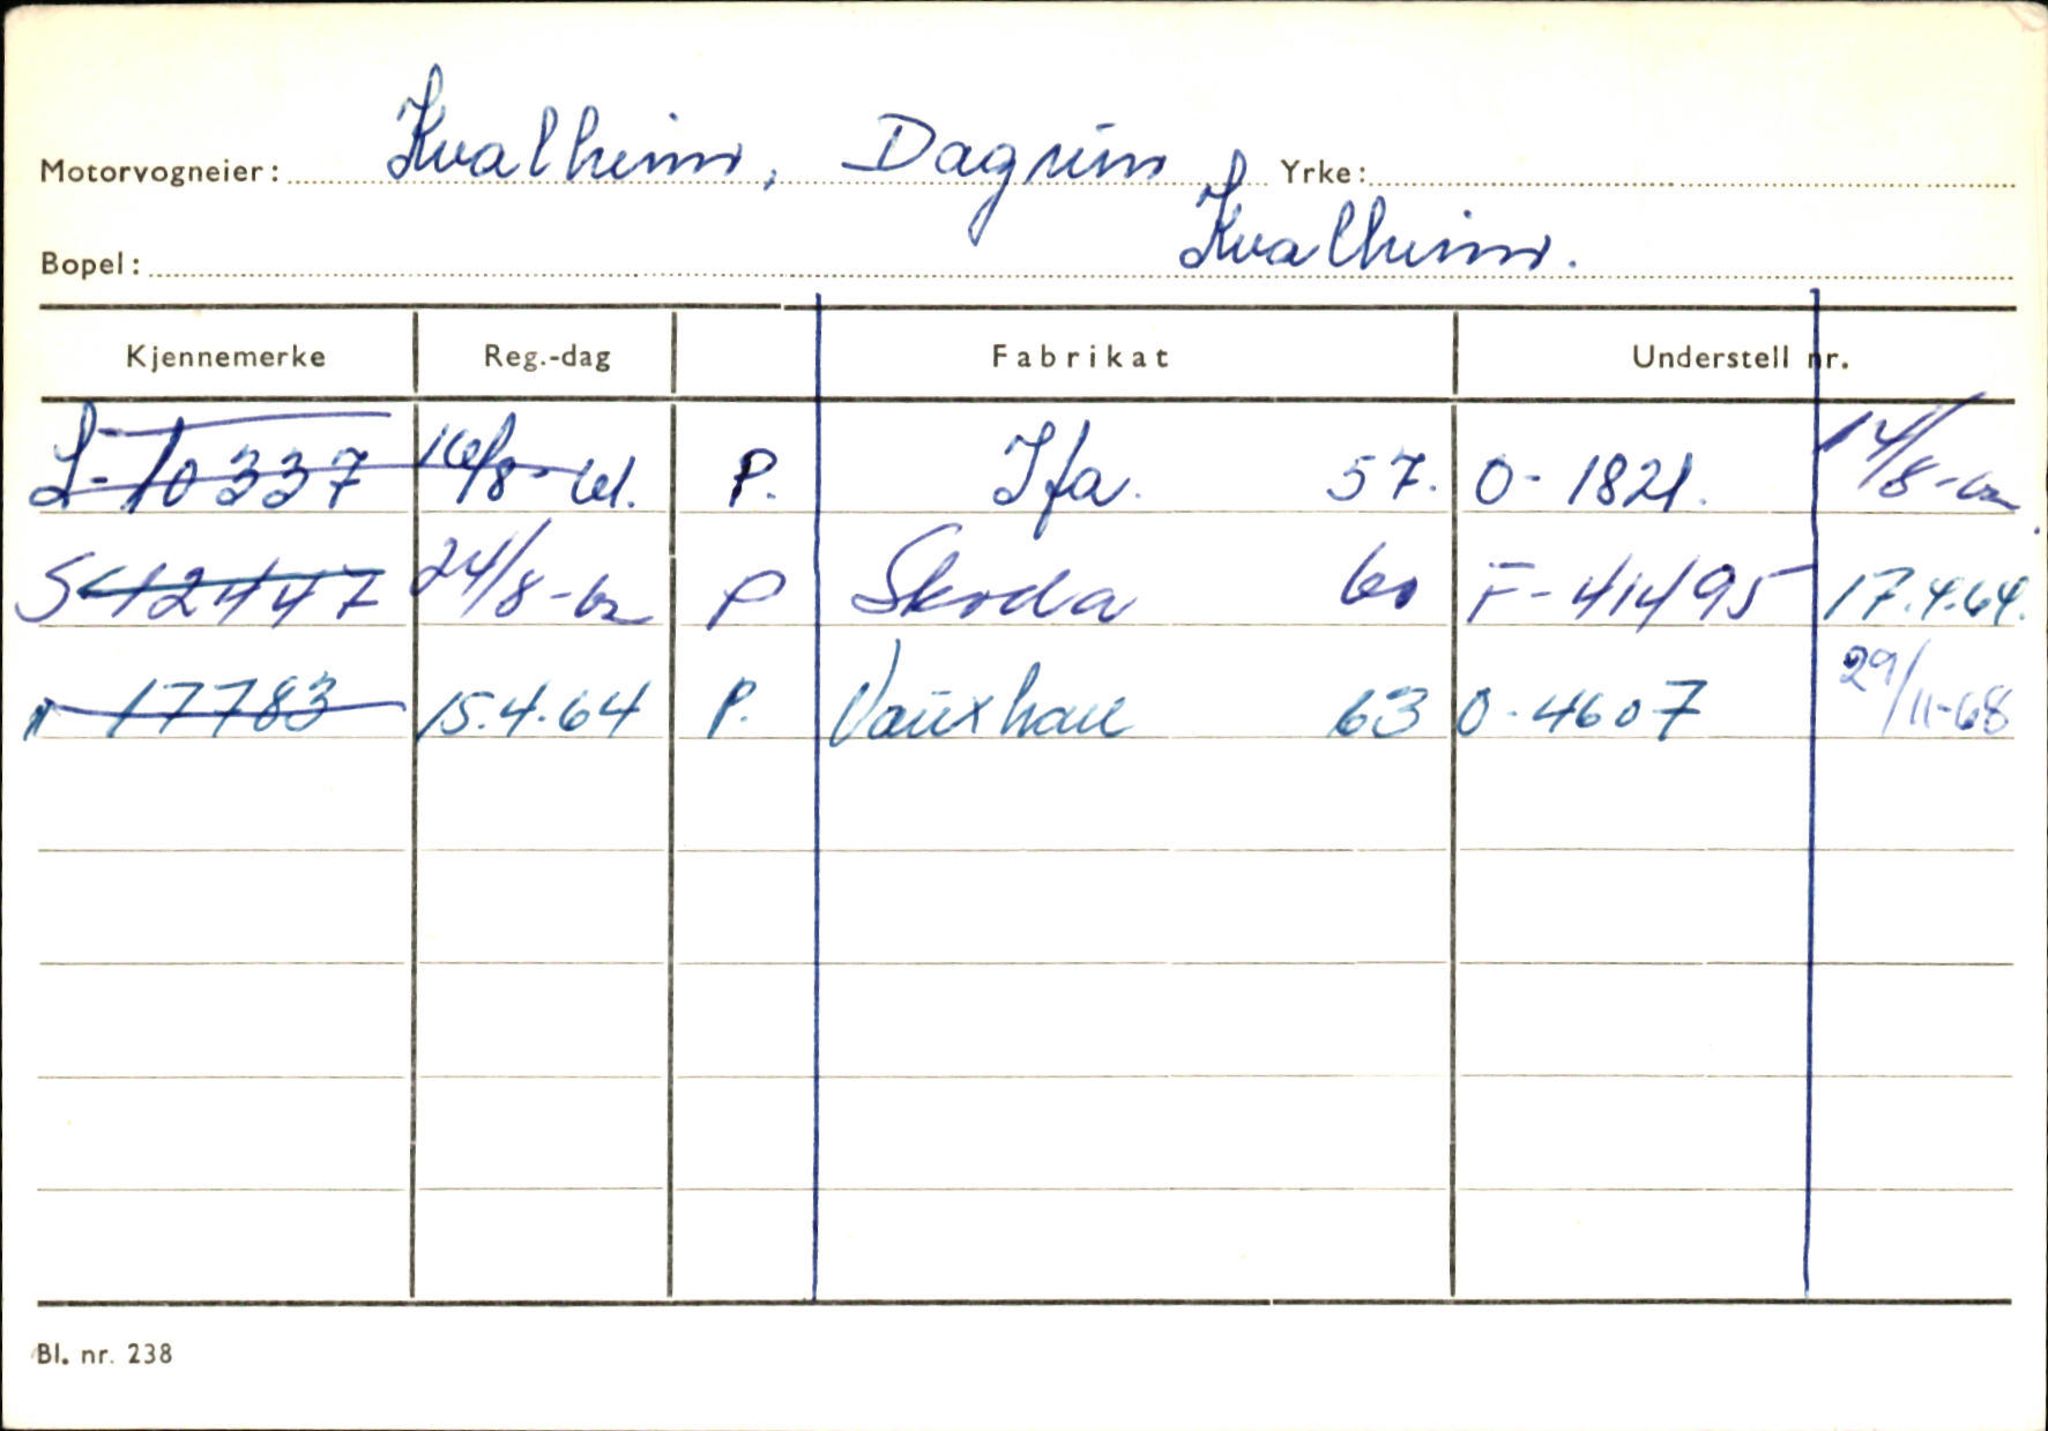 Motorvogneier: Kvalheim, Dagrun Yrke:
Bopel: Kvalheim.
Kjennemerke Reg.-dag Fabrikat Understell nr.
S-10337 16/8-61. P. Ifa. 57. 0-1821. 14/8-62
S-12447 24/8-62 P Skoda 60 F-41495 17.4.64.
" 17783 15.4.64 P. Vauxhall 63 0-4607 29/11-68
Bl. nr. 238